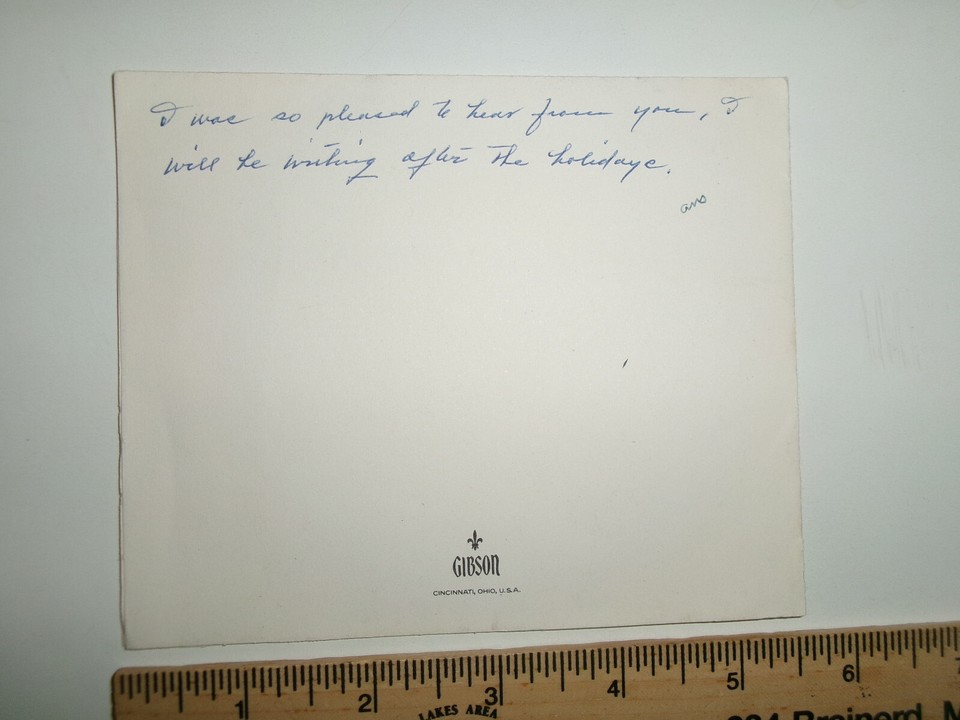 I was so pleased to hear from you, I
will be writing after the holidays.
ans
GIBSON
CINCINNATI, OHIO, U.S.A.
1 2 3 4 5 6 7
LAKES AREA
Brainerd, M